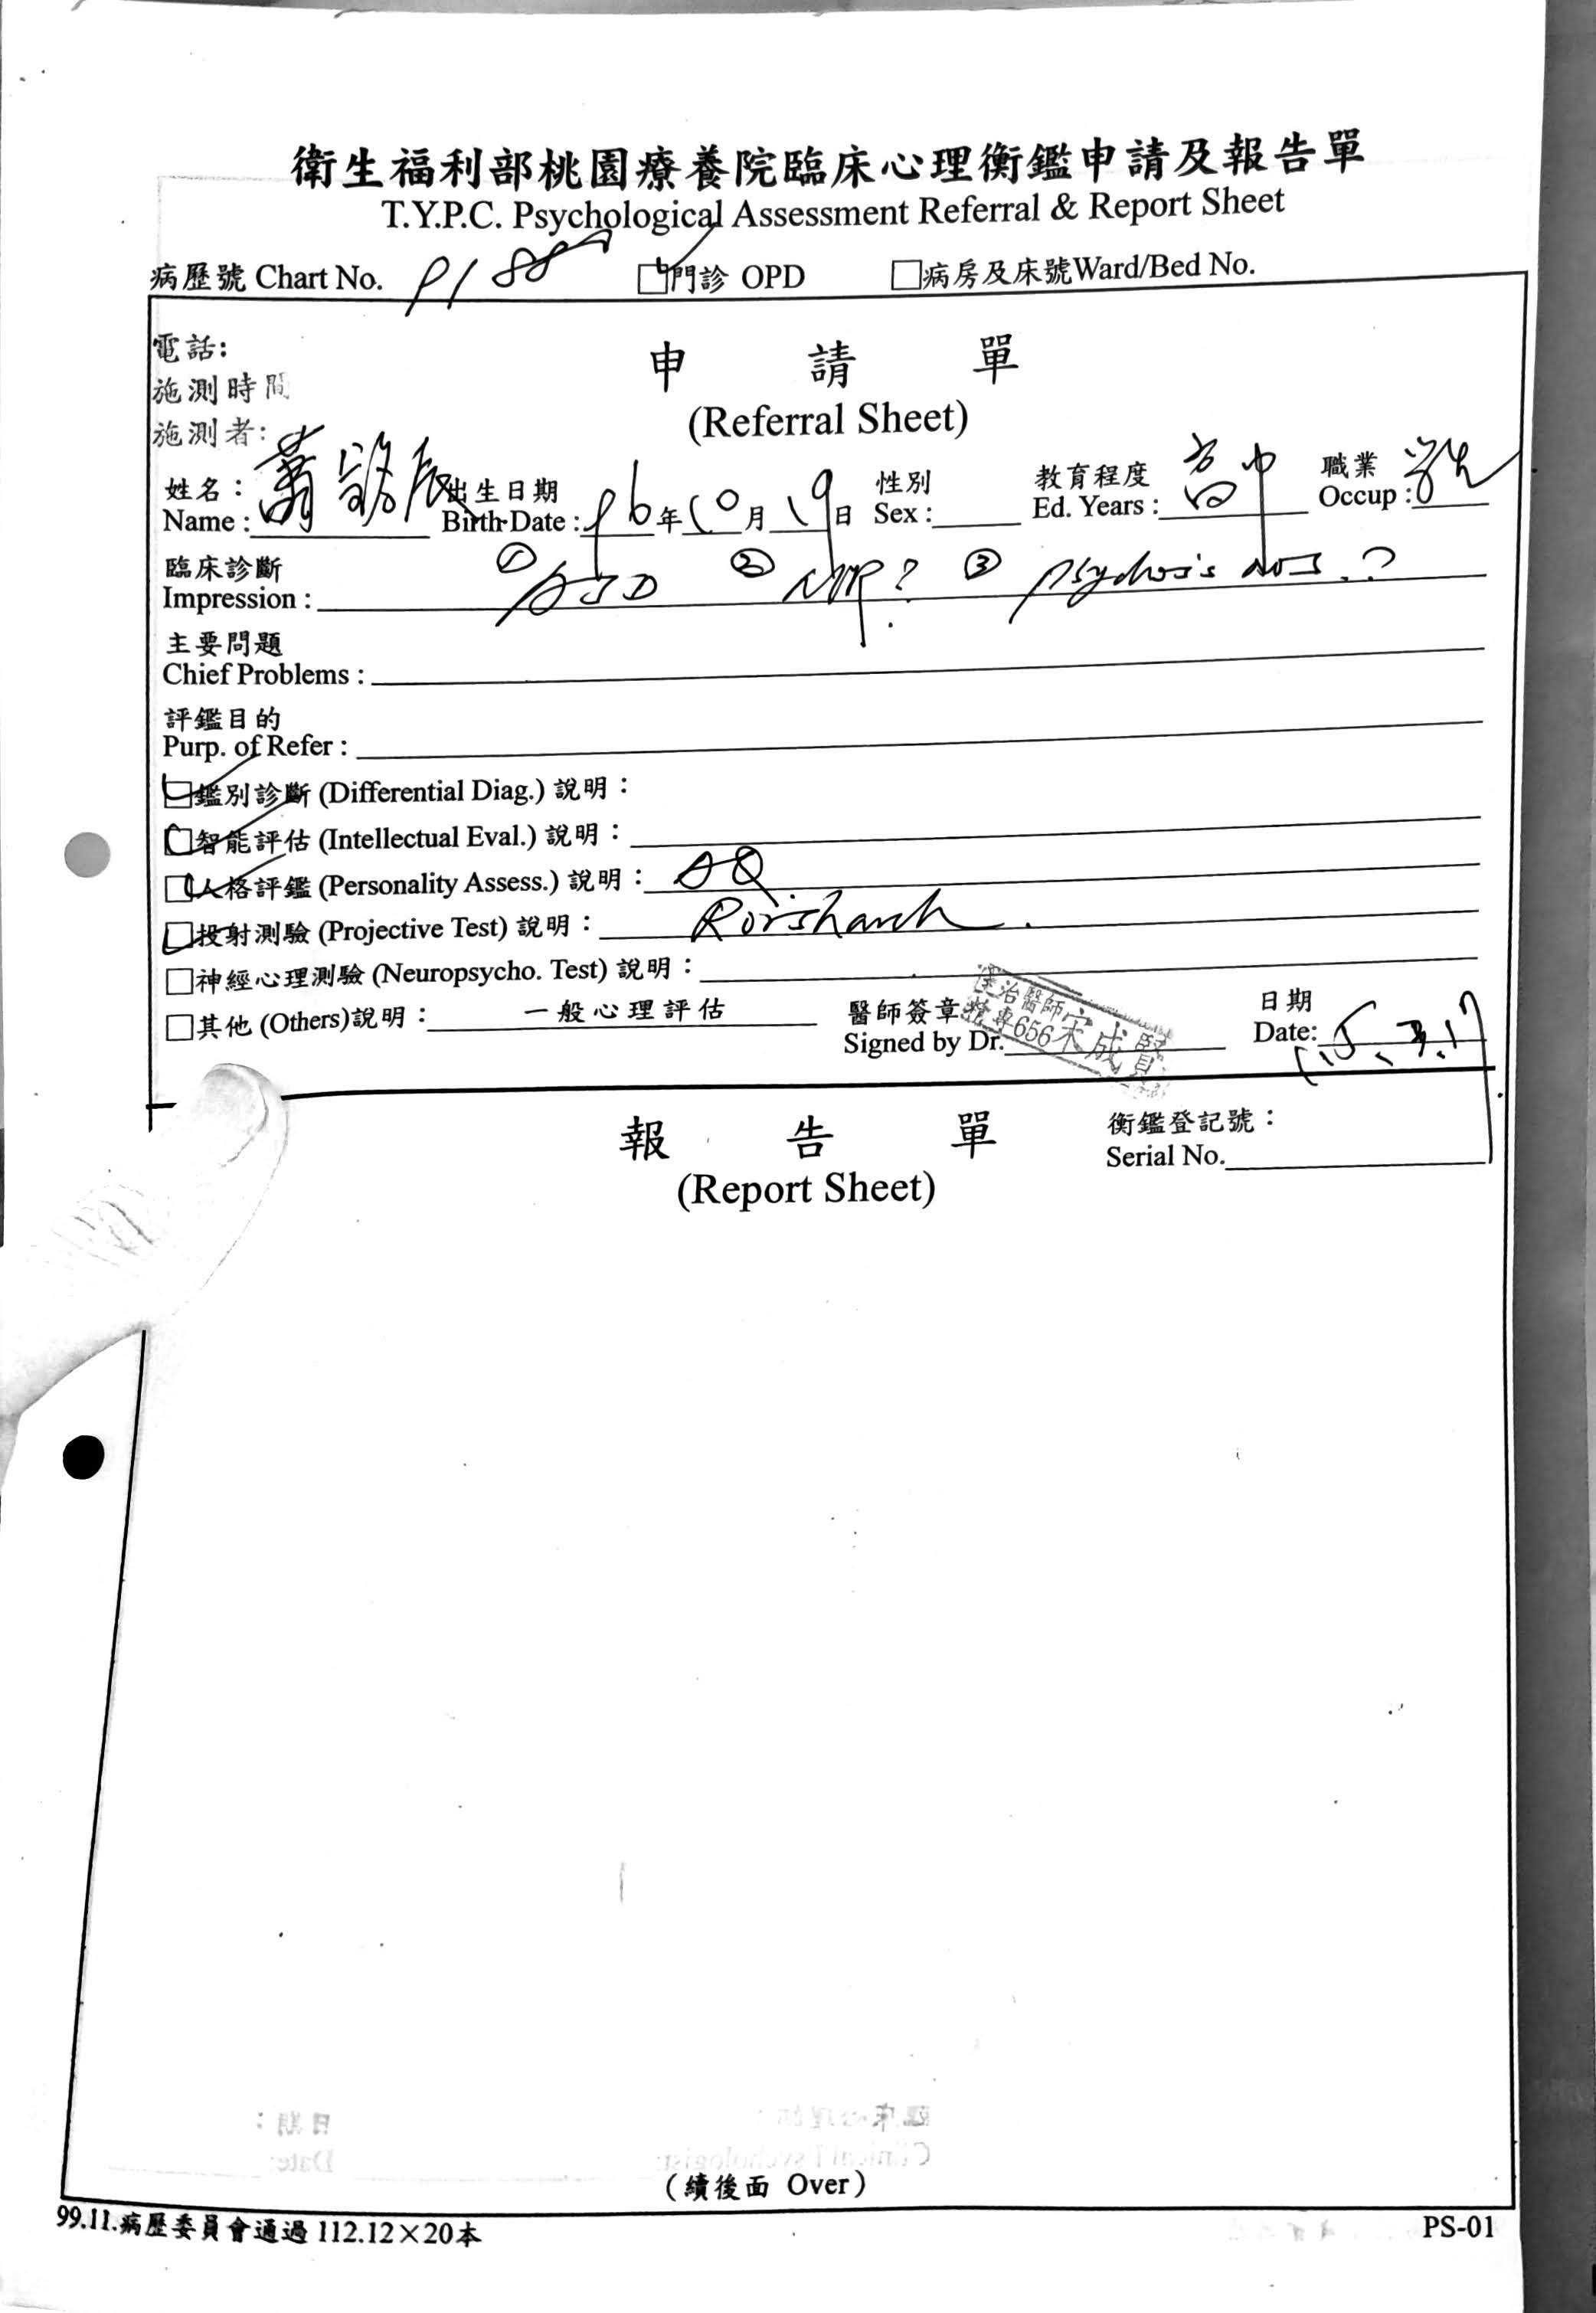 衛生福利部桃園療養院臨床心理衡鑑申請及報告單
T.Y.P.C. Psychological Assessment Referral & Report Sheet
病歷號 Chart No. □門診 OPD □病房及床號Ward/Bed No.
電話:
申 請 單
施測時間
(Referral Sheet)
施測者:
姓名： 蕭 辰 出生日期 96年10月19日 性別 教育程度 高中 職業 学生
Name : Birth Date : Sex : Ed. Years : Occup :
臨床診斷 ① ASD ② ? ③ psychosis NOS.?
Impression :
主要問題
Chief Problems :
評鑑目的
Purp. of Refer :
□鑑別診斷 (Differential Diag.) 說明：
□智能評估 (Intellectual Eval.) 說明：
□人格評鑑 (Personality Assess.) 說明： AQ
□投射測驗 (Projective Test) 說明： Rorshach.
□神經心理測驗 (Neuropsycho. Test) 說明：
□其他 (Others)說明： 一般心理評估 醫師簽章 日期
Signed by Dr. 主治醫師 宋成賢 656 Date: 115.3.17
報 告 單 衡鑑登記號：
(Report Sheet) Serial No.
(續後面 Over)
99.11.病歷委員會通過 112.12×20本 PS-01